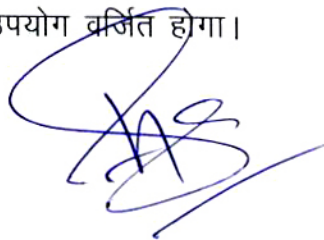 उपयोग वर्जित होगा।